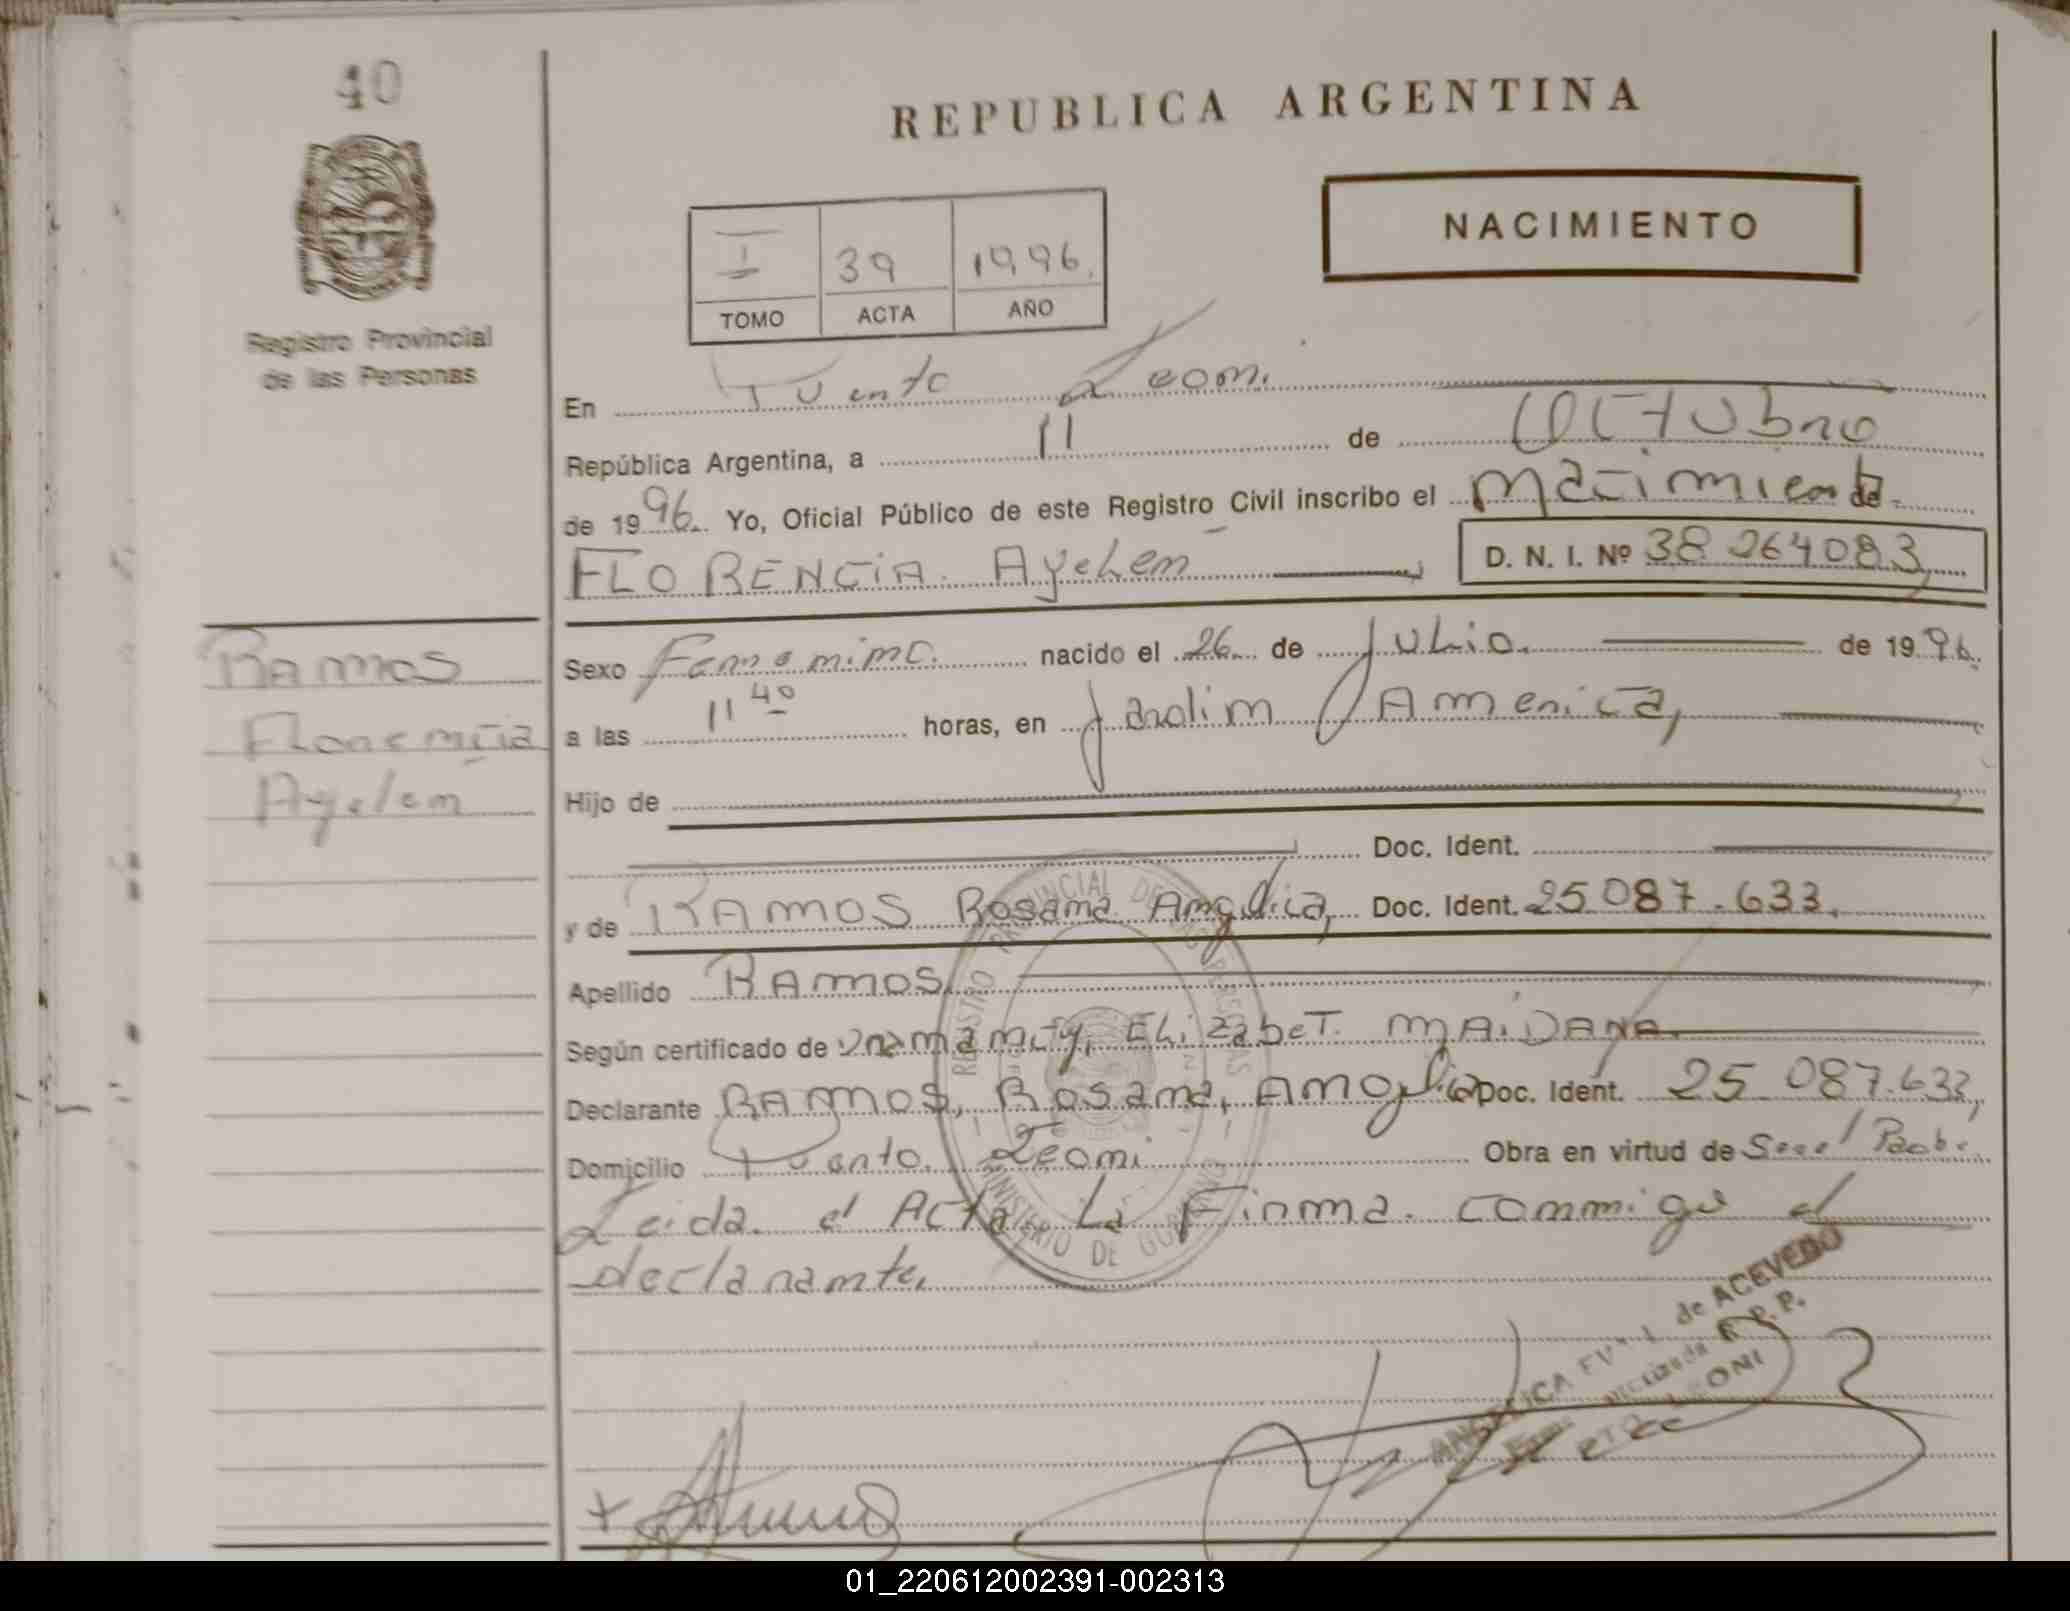 40
REPUBLICA ARGENTINA
NACIMIENTO
I 39 1996.
TOMO ACTA AÑO
Registro Provincial
de las Personas
En Puerto Leoni
República Argentina, a 11 de Octubre
de 1996. Yo, Oficial Público de este Registro Civil inscribo el nacimiento de
FLORENCIA Ayelen D. N. I. Nº 38 264083
Ramos
Florencia
Ayelem
Sexo Femenino. nacido el 26 de Julio. de 1996.
a las 11 40 horas, en Jardin America,
Hijo de
Doc. Ident.
y de RAMOS Rosana Angelica, Doc. Ident. 25.087.633.
Apellido RAMOS
Según certificado de Elizabet. MAIDANA.
Declarante RAMOS, Rosana, Angelica Doc. Ident. 25.087.633,
Domicilio Puerto Leoni Obra en virtud de
Leida el Acta La Firma conmigo el
declarante.
REGISTRO PROVINCIAL DE LAS PERSONAS
MINISTERIO DE GOBIERNO
ANGELICA de ACEVEDO
R. P. P.
PTO. LEONI
01_220612002391-002313